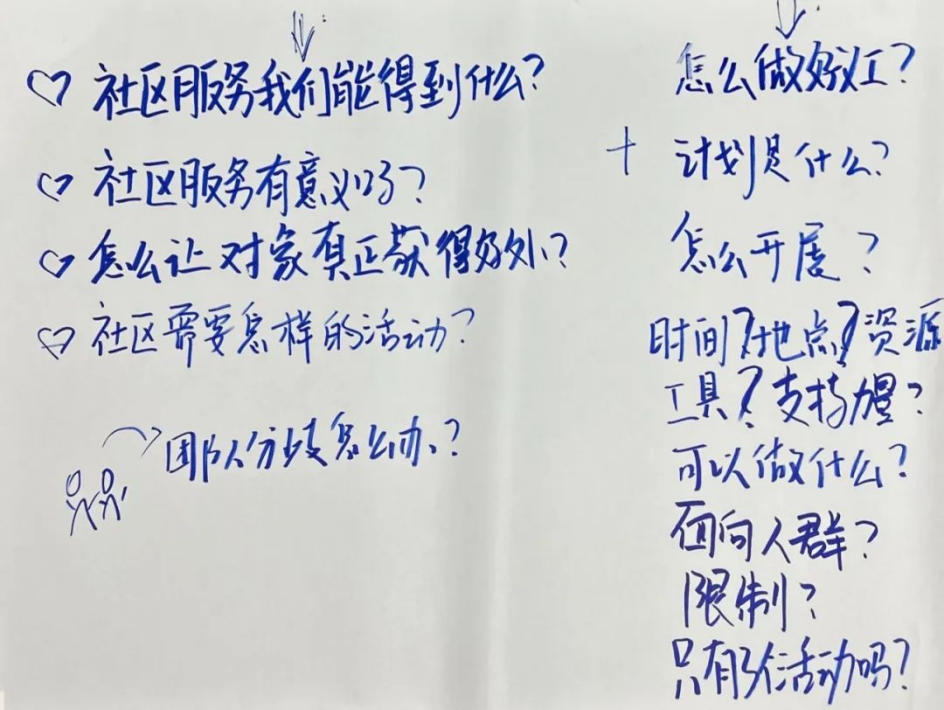 社区服务我们能得到什么?
社区服务有意义吗?
怎么让对象真正获得好处?
社区需要怎样的活动?
团队分歧怎么办?
怎么做好义工?
+ 计划是什么?
怎么开展?
时间?地点?资源
工具?支持力量?
可以做什么?
面向人群?
限制?
只有3个活动吗?